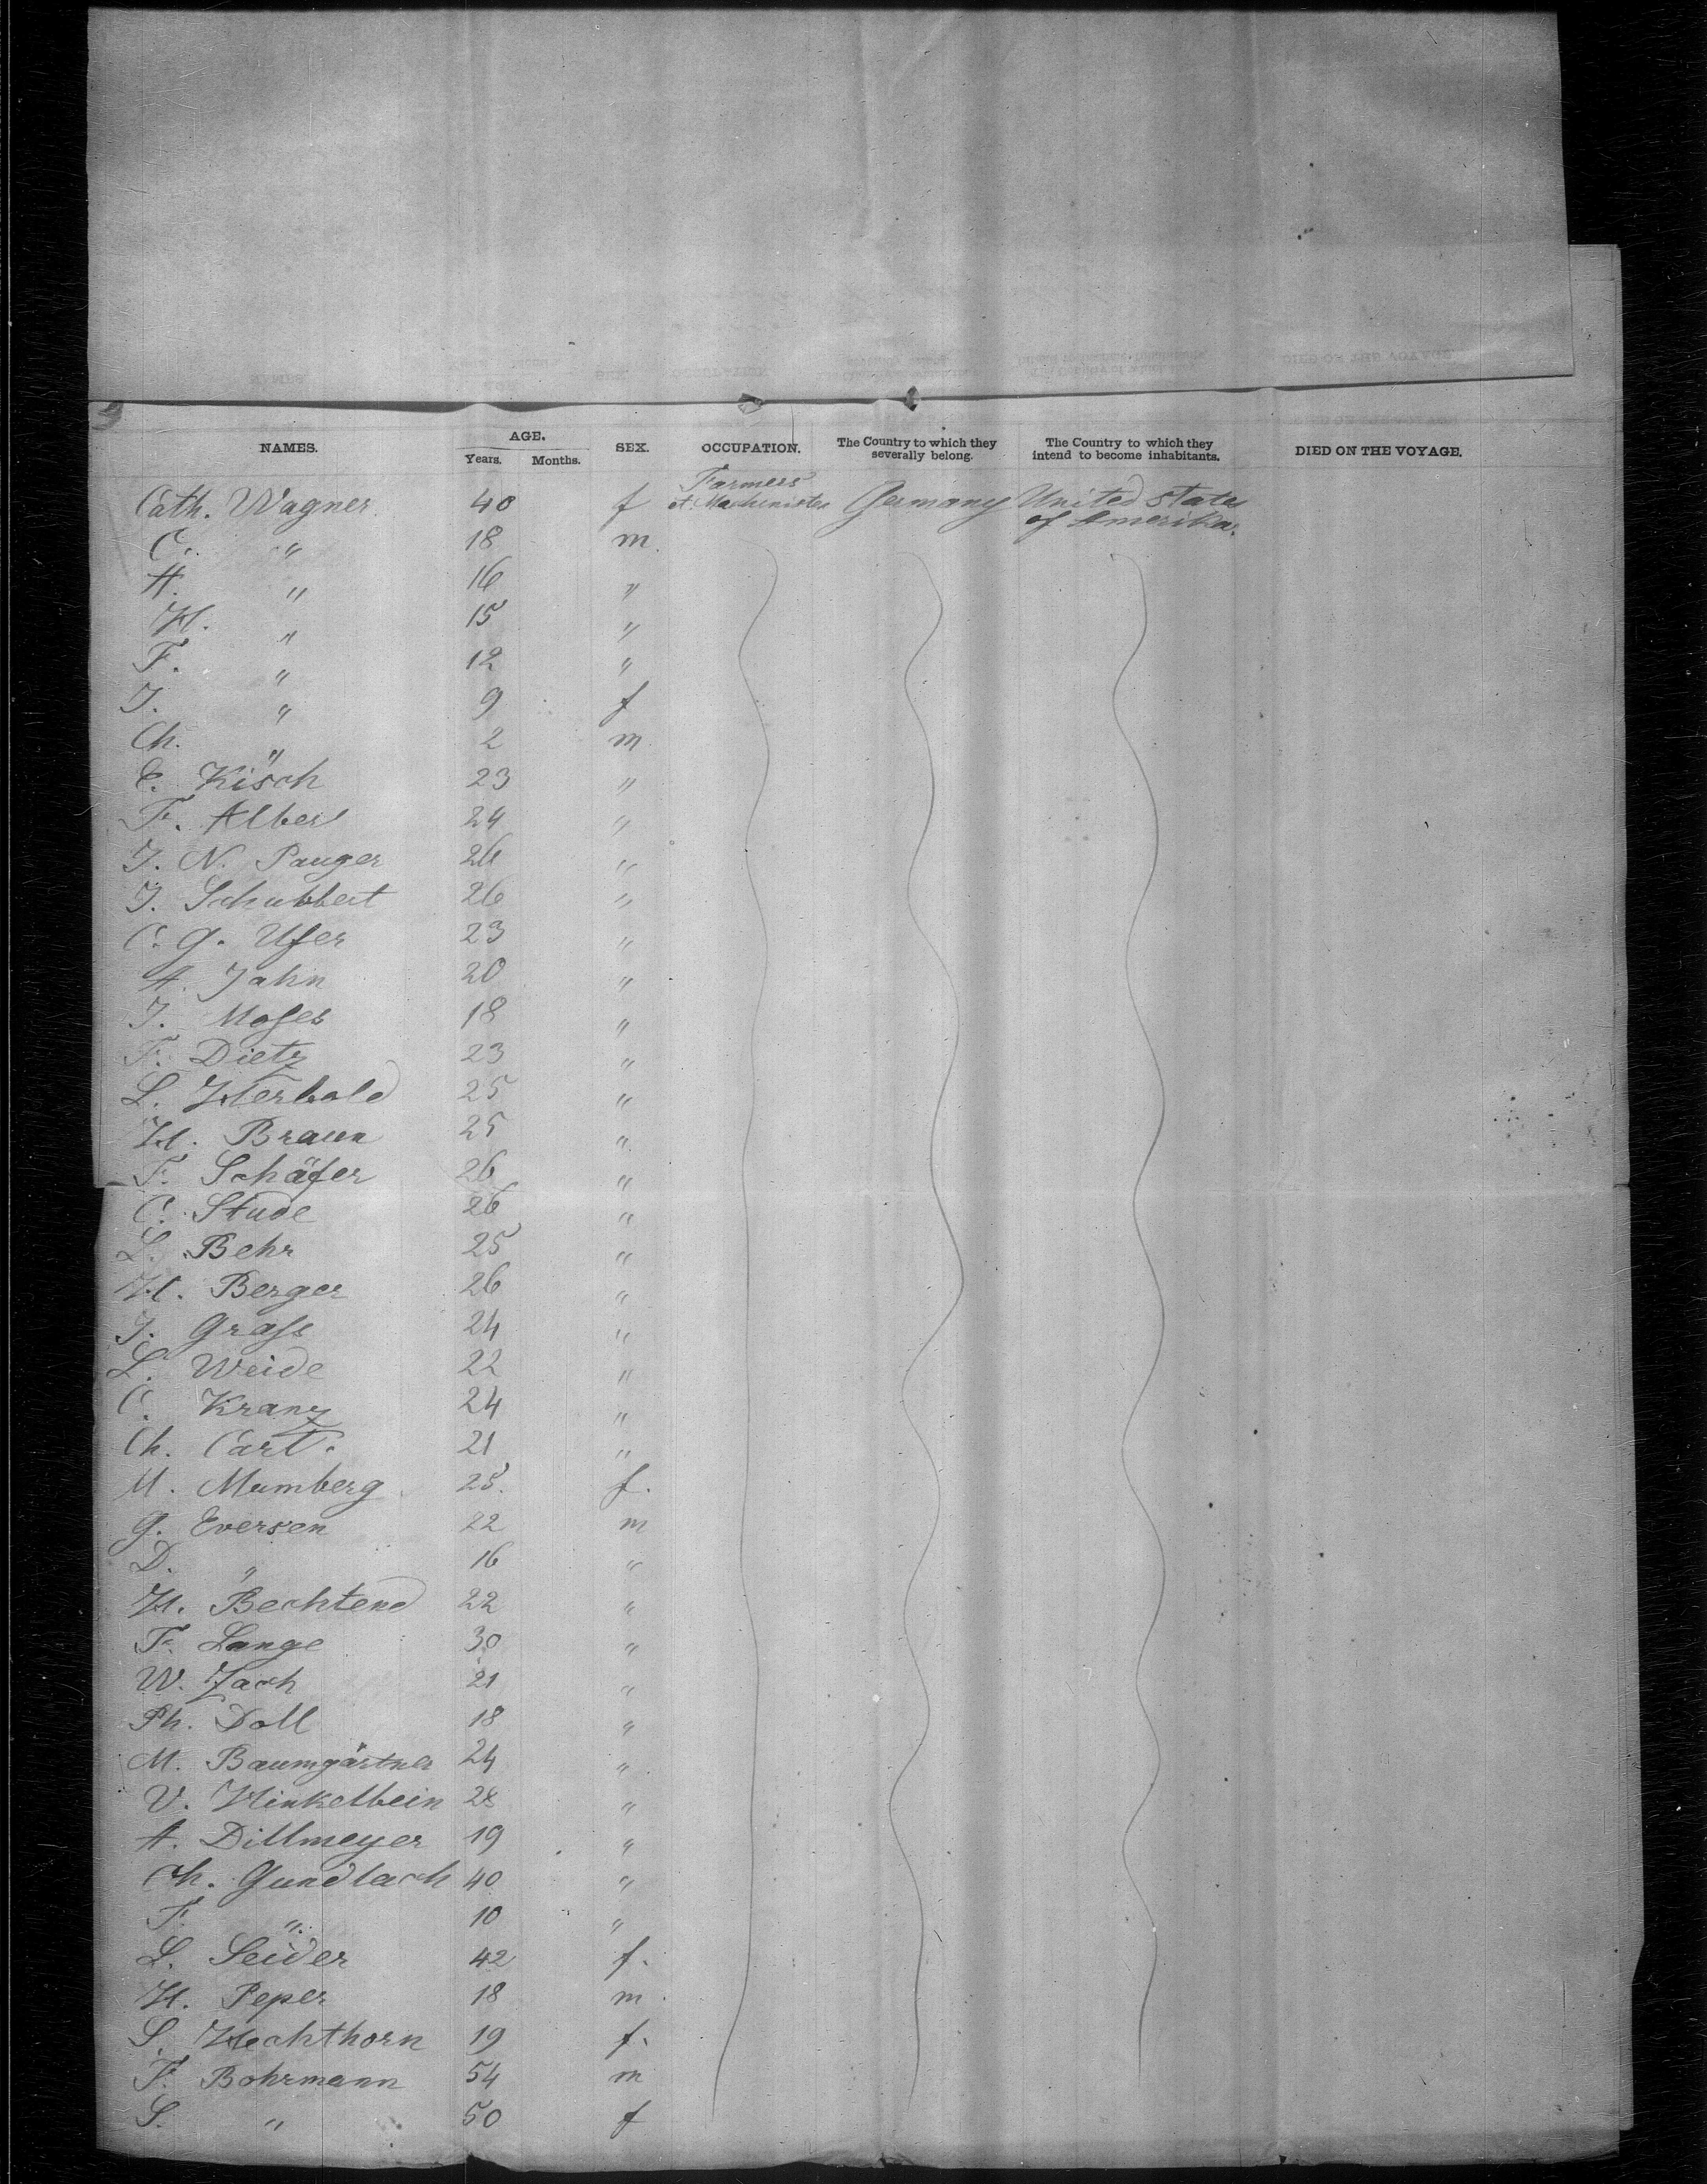 NAMES. AGE. Years. Months. SEX. OCCUPATION. The Country to which they severally belong. The Country to which they intend to become inhabitants. DIED ON THE VOYAGE.
Cath. Wagner 40 f Farmers et. Machinistes Germany United States of Amerika.
C. " 18 m.
A. " 16 "
H. " 15 "
F. " 12 "
J. " 9 f
Ch. " 2 m
E. Kisch 23 "
F. Alber 24 "
J. N. Pauger 26 "
J. Schubbert 26 "
C. G. Ufer 23 "
A. Jahn 20 "
J. Moses 18 "
F. Dietz 23 "
L. Herbold 25 "
H. Braun 25 "
F. Schäfer 26 "
C. Stude 26 "
L. Behr 25 "
H. Berger 26 "
J. Grass 24 "
L. Weide 22 "
C. Kranz 24 "
Ch. Cart. 21 "
M. Mumberg 25. f.
G. Eversen 22 m
D. " 16 "
H. Bechtend 22 "
F. Lange 30 "
W. Zach 21 "
Ph. Doll 18 "
M. Baumgärtner 24 "
V. Hinkelbein 28 "
A. Dillmeyer 19 "
Ch. Gundlach 40 "
F. " 10 "
L. Seider 42 f.
H. Peper 18 m
S. Hechthorn 19 f.
F. Bohrmann 54 m
S. " 50 f